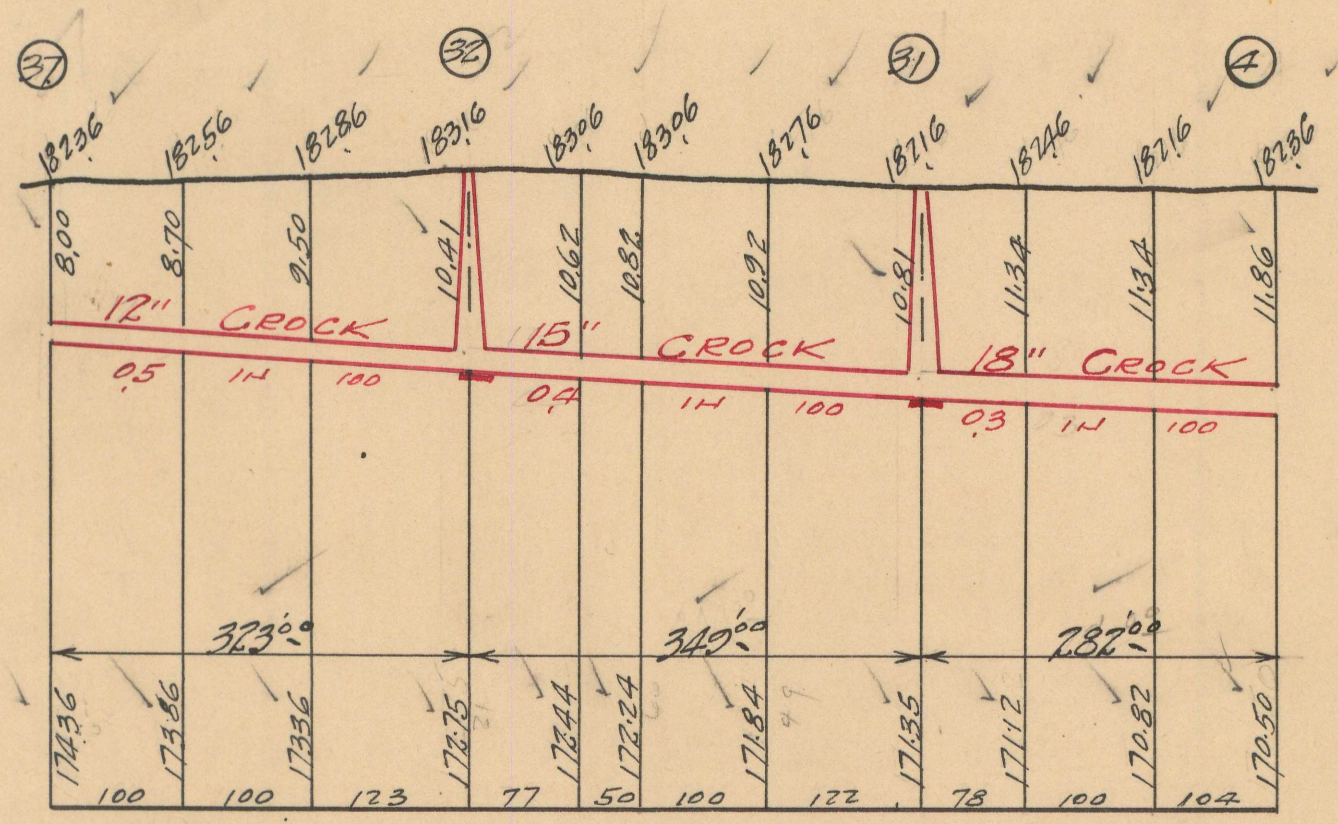 37 32 31 4
182.36 182.56 182.86 183.16 183.06 183.06 182.76 182.16 182.46 182.16 182.36
8.00 8.70 9.50 10.41 10.62 10.82 10.92 10.81 11.34 11.34 11.86
12" CROCK 15" CROCK 18" CROCK
0.5 IN 100 0.4 IN 100 0.3 IN 100
323'00 349'00 282'00
174.36 173.86 173.36 172.75 172.44 172.24 171.84 171.35 171.12 170.82 170.50
100 100 123 77 50 100 122 78 100 104